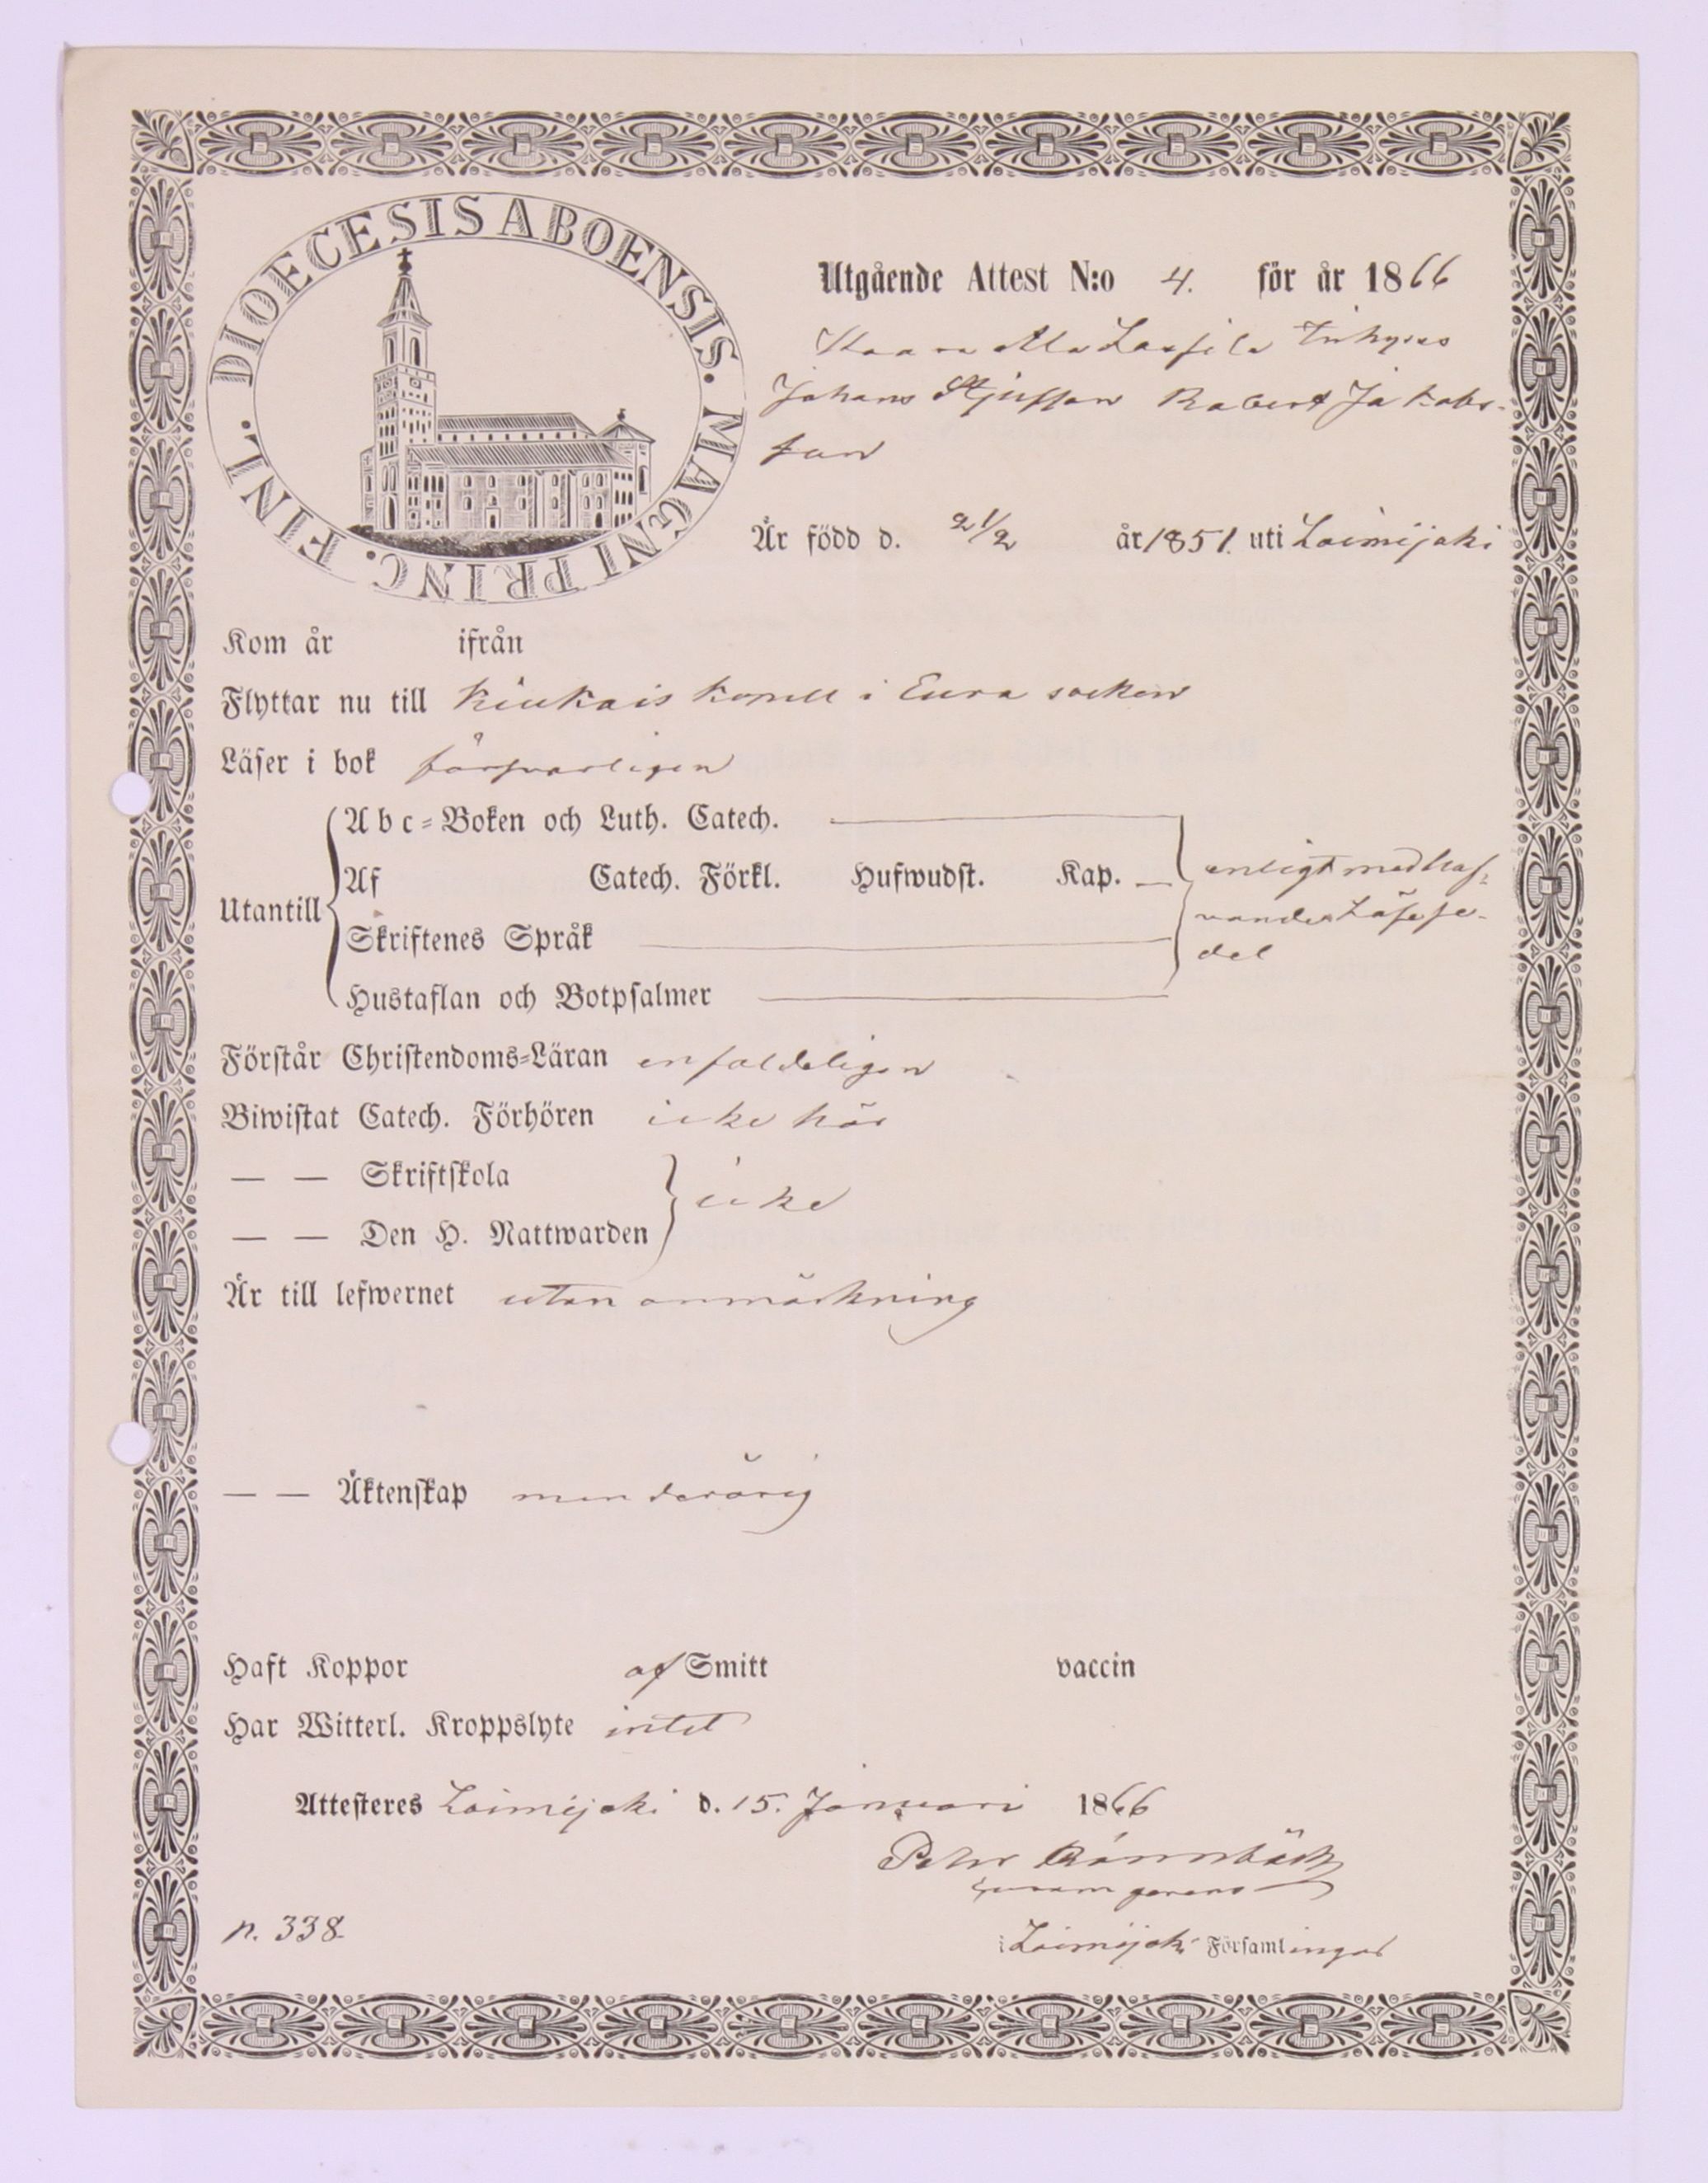 DIOECESIS ABOENSIS. MAGNI PRINC. FINL.
Utgående Attest N:o 4. för år 1866
Johans Robert Jakobs-
son
Är född d. 21/2 år 1851. uti Loimijoki
Kom år ifrån
Flyttar nu till Kiukais kapell i Eura socken
Läser i bok försvarligen
Abc-Boken och Luth. Catech.
Af Catech. Förkl. Hufwudst. Kap. enligt medhaf-
Utantill vande Läsese-
Skriftenes Språk del
Hustaflan och Botpsalmer
Förstår Christendoms-Läran enfaldeligen
Biwistat Catech. Förhören icke här
— — Skriftskola icke
— — Den H. Nattwarden
Är till lefwernet utan anmärkning
— — Äktenskap minderårig
Haft Koppor af Smitt vaccin
Har Witterl. Kroppslyte intet
Attesteres Loimijoki d. 15. Januari 1866
Petter Rönnbäck
curam gerens
p. 338.
i Loimijoki Församlingar